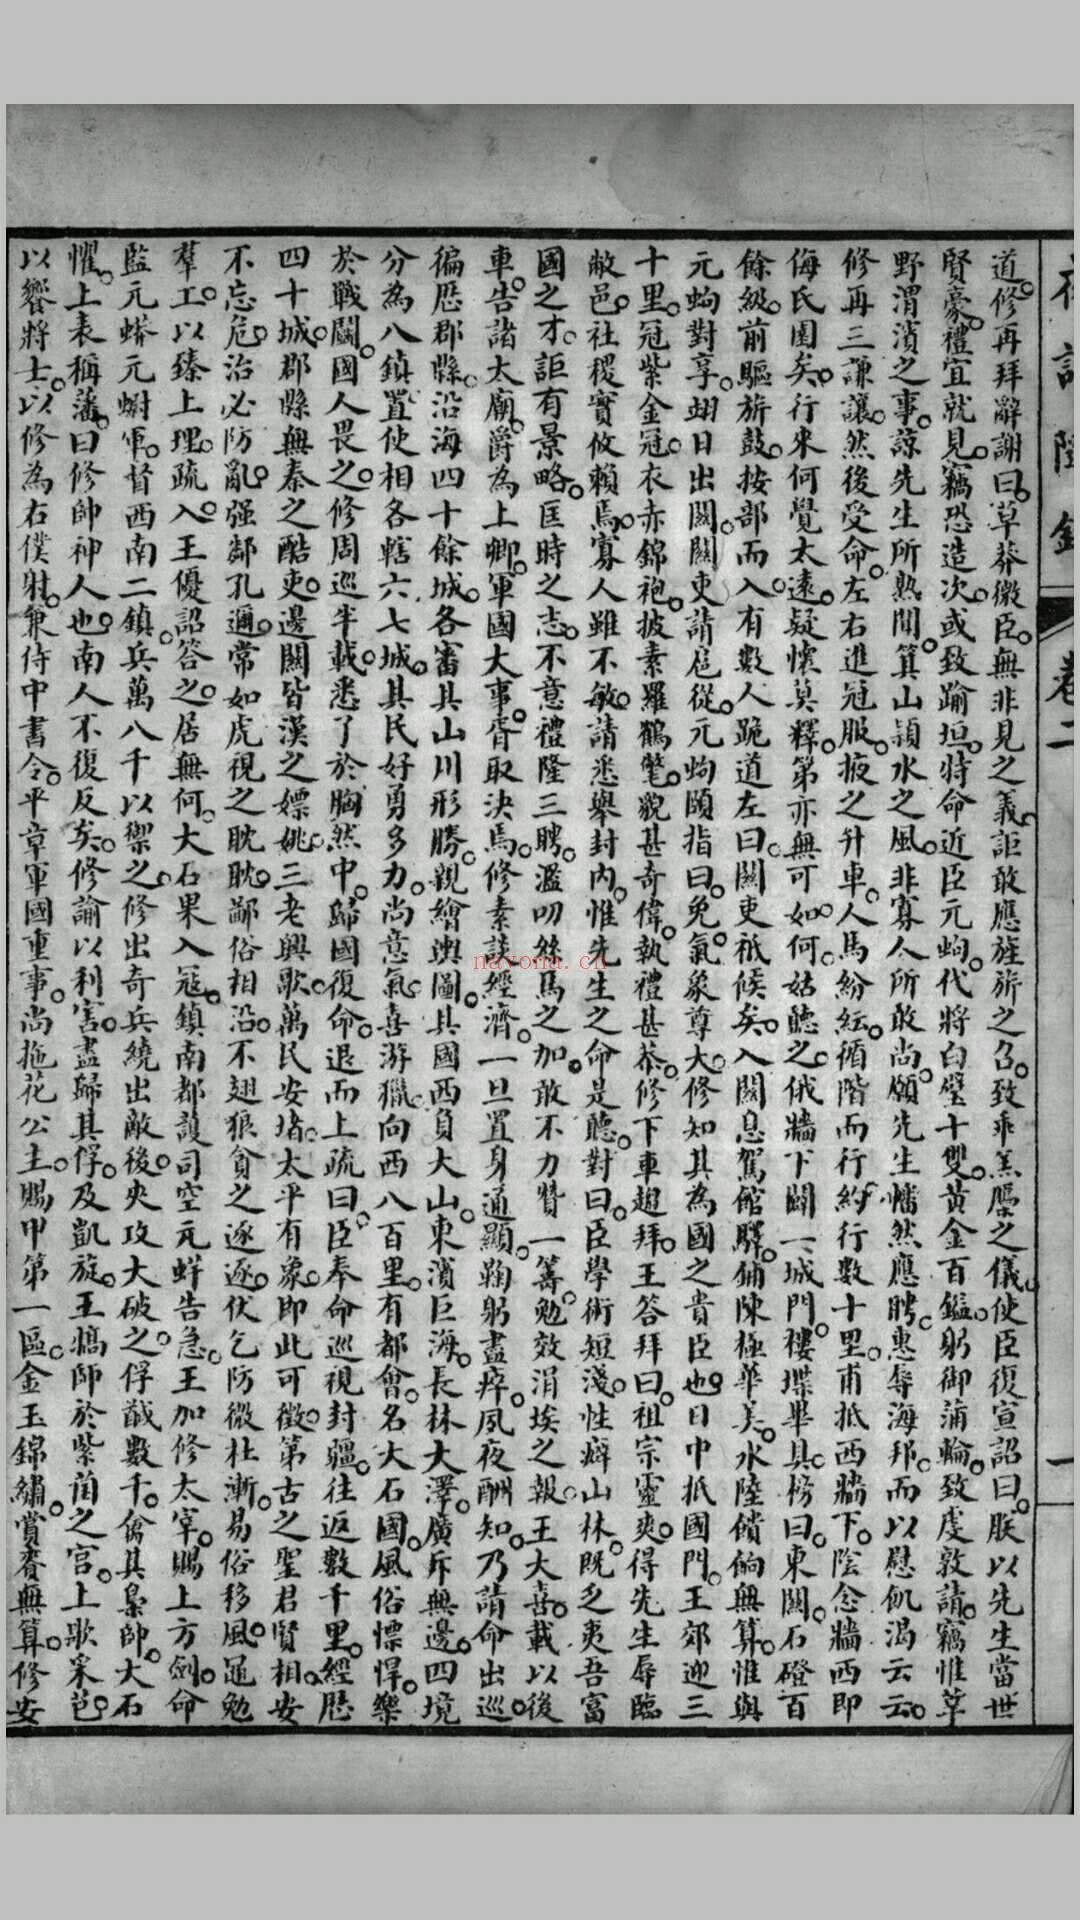 夜譚隨錄
卷二
一
道。修再拜辭謝曰。草莽微臣。無非見之義。詎敢應旌旂之召。致乖羔鴈之儀。使臣復宣詔曰。朕以先生當世
賢豪。禮宜就見。竊恐造次。或致踰垣。特命近臣元蚼。代將白璧十雙。黃金百鎰。躬御蒲輪。致虔敦請。竊惟莘
野渭濱之事。諒先生所熟聞。箕山潁水之風。非寡人所敢尚。願先生幡然應聘。惠辱海邦。而以慰飢渴云云。
修再三謙讓。然後受命。左右進冠服。掖之升車。人馬紛紜。循階而行。約行數十里。甫抵西牆下。陰念牆西即
侮氏圃矣。行來何覺太遠。疑懷莫釋。第亦無可如何。姑聽之。俄牆下闢一城門。樓堞畢具。榜曰。東關。石磴百
餘級。前驅旂鼓。按部而入。有數人跪道左曰。關吏祇候矣。入關息駕館驛。鋪陳極華美。水陸饋餉無算。惟與
元蚼對享。翊日出關。關吏請扈從。元蚼頤指曰。免。氣象尊大。修知其為國之貴臣也。日中抵國門。王郊迎三
十里。冠紫金冠。衣赤錦袍。披素羅鶴氅。貌甚奇偉。執禮甚恭。修下車趨拜。王答拜曰。祖宗靈爽。得先生辱臨
敝邑。社稷實攸賴焉。寡人雖不敏。請悉舉封內。惟先生之命是聽。對曰。臣學術短淺。性癖山林。既乏夷吾富
國之才。詎有景略。匡時之志。不意禮隆三聘。濫叨絲馬之加。敢不力贊一籌。勉效涓埃之報。王大喜。載以後
車。告諸太廟。爵為上卿。軍國大事。胥取決焉。修素談經濟。一旦置身通顯。鞠躬盡瘁。夙夜酬知。乃請命出巡。
徧歷郡縣。沿海四十餘城。各審其山川形勝。親繪輿圖。其國西負大山。東濱巨海。長林大澤。廣斥無邊。四境
分為八鎮。置使相各轄六七城。其民好勇多力。尚意氣。喜游獵。向西八百里。有都會。名大石國。風俗慓悍。樂
於戰鬭。國人畏之。修周巡半載。悉了於胸然中。歸國復命。退而上疏曰。臣奉命巡視封疆。往返數千里。經歷
四十城。郡縣無秦之酷吏。邊關皆漢之嫖姚。三老興歌。萬民安堵。太平有象。即此可徵。第古之聖君賢相。安
不忘危。治必防亂。强鄰孔邇。常如虎視之眈眈。鄙俗相沿。不翅狼貪之逐逐。伏乞防微杜漸。易俗移風。黽勉
羣工。以臻上理。疏入。王優詔答之。居無何。大石果入寇。鎮南都護司空元蛘告急。王加修太宰。賜上方劍。命
監元蟒元蝌軍。督西南二鎮。兵萬八千以禦之。修出奇兵繞出敵後。夾攻大破之。俘馘數千。禽其梟帥。大石
懼。上表稱藩。曰修帥神人也。南人不復反矣。修諭以利害。盡歸其俘。及凱旋。王犒師於紫菌之宮。上歌采芑。
以饗將士。以修為右僕射。兼侍中書令。平章軍國重事。尚拖花公主。賜甲第一區。金玉錦繡。賞賚無算。修安